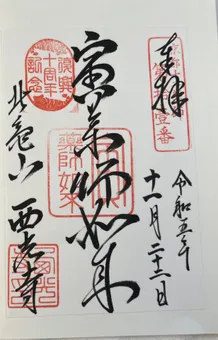 奉拝
令和五年
十一月二十三日
寅薬師如来
薬師如来
復興
十周年
記念
北亀山 西光寺